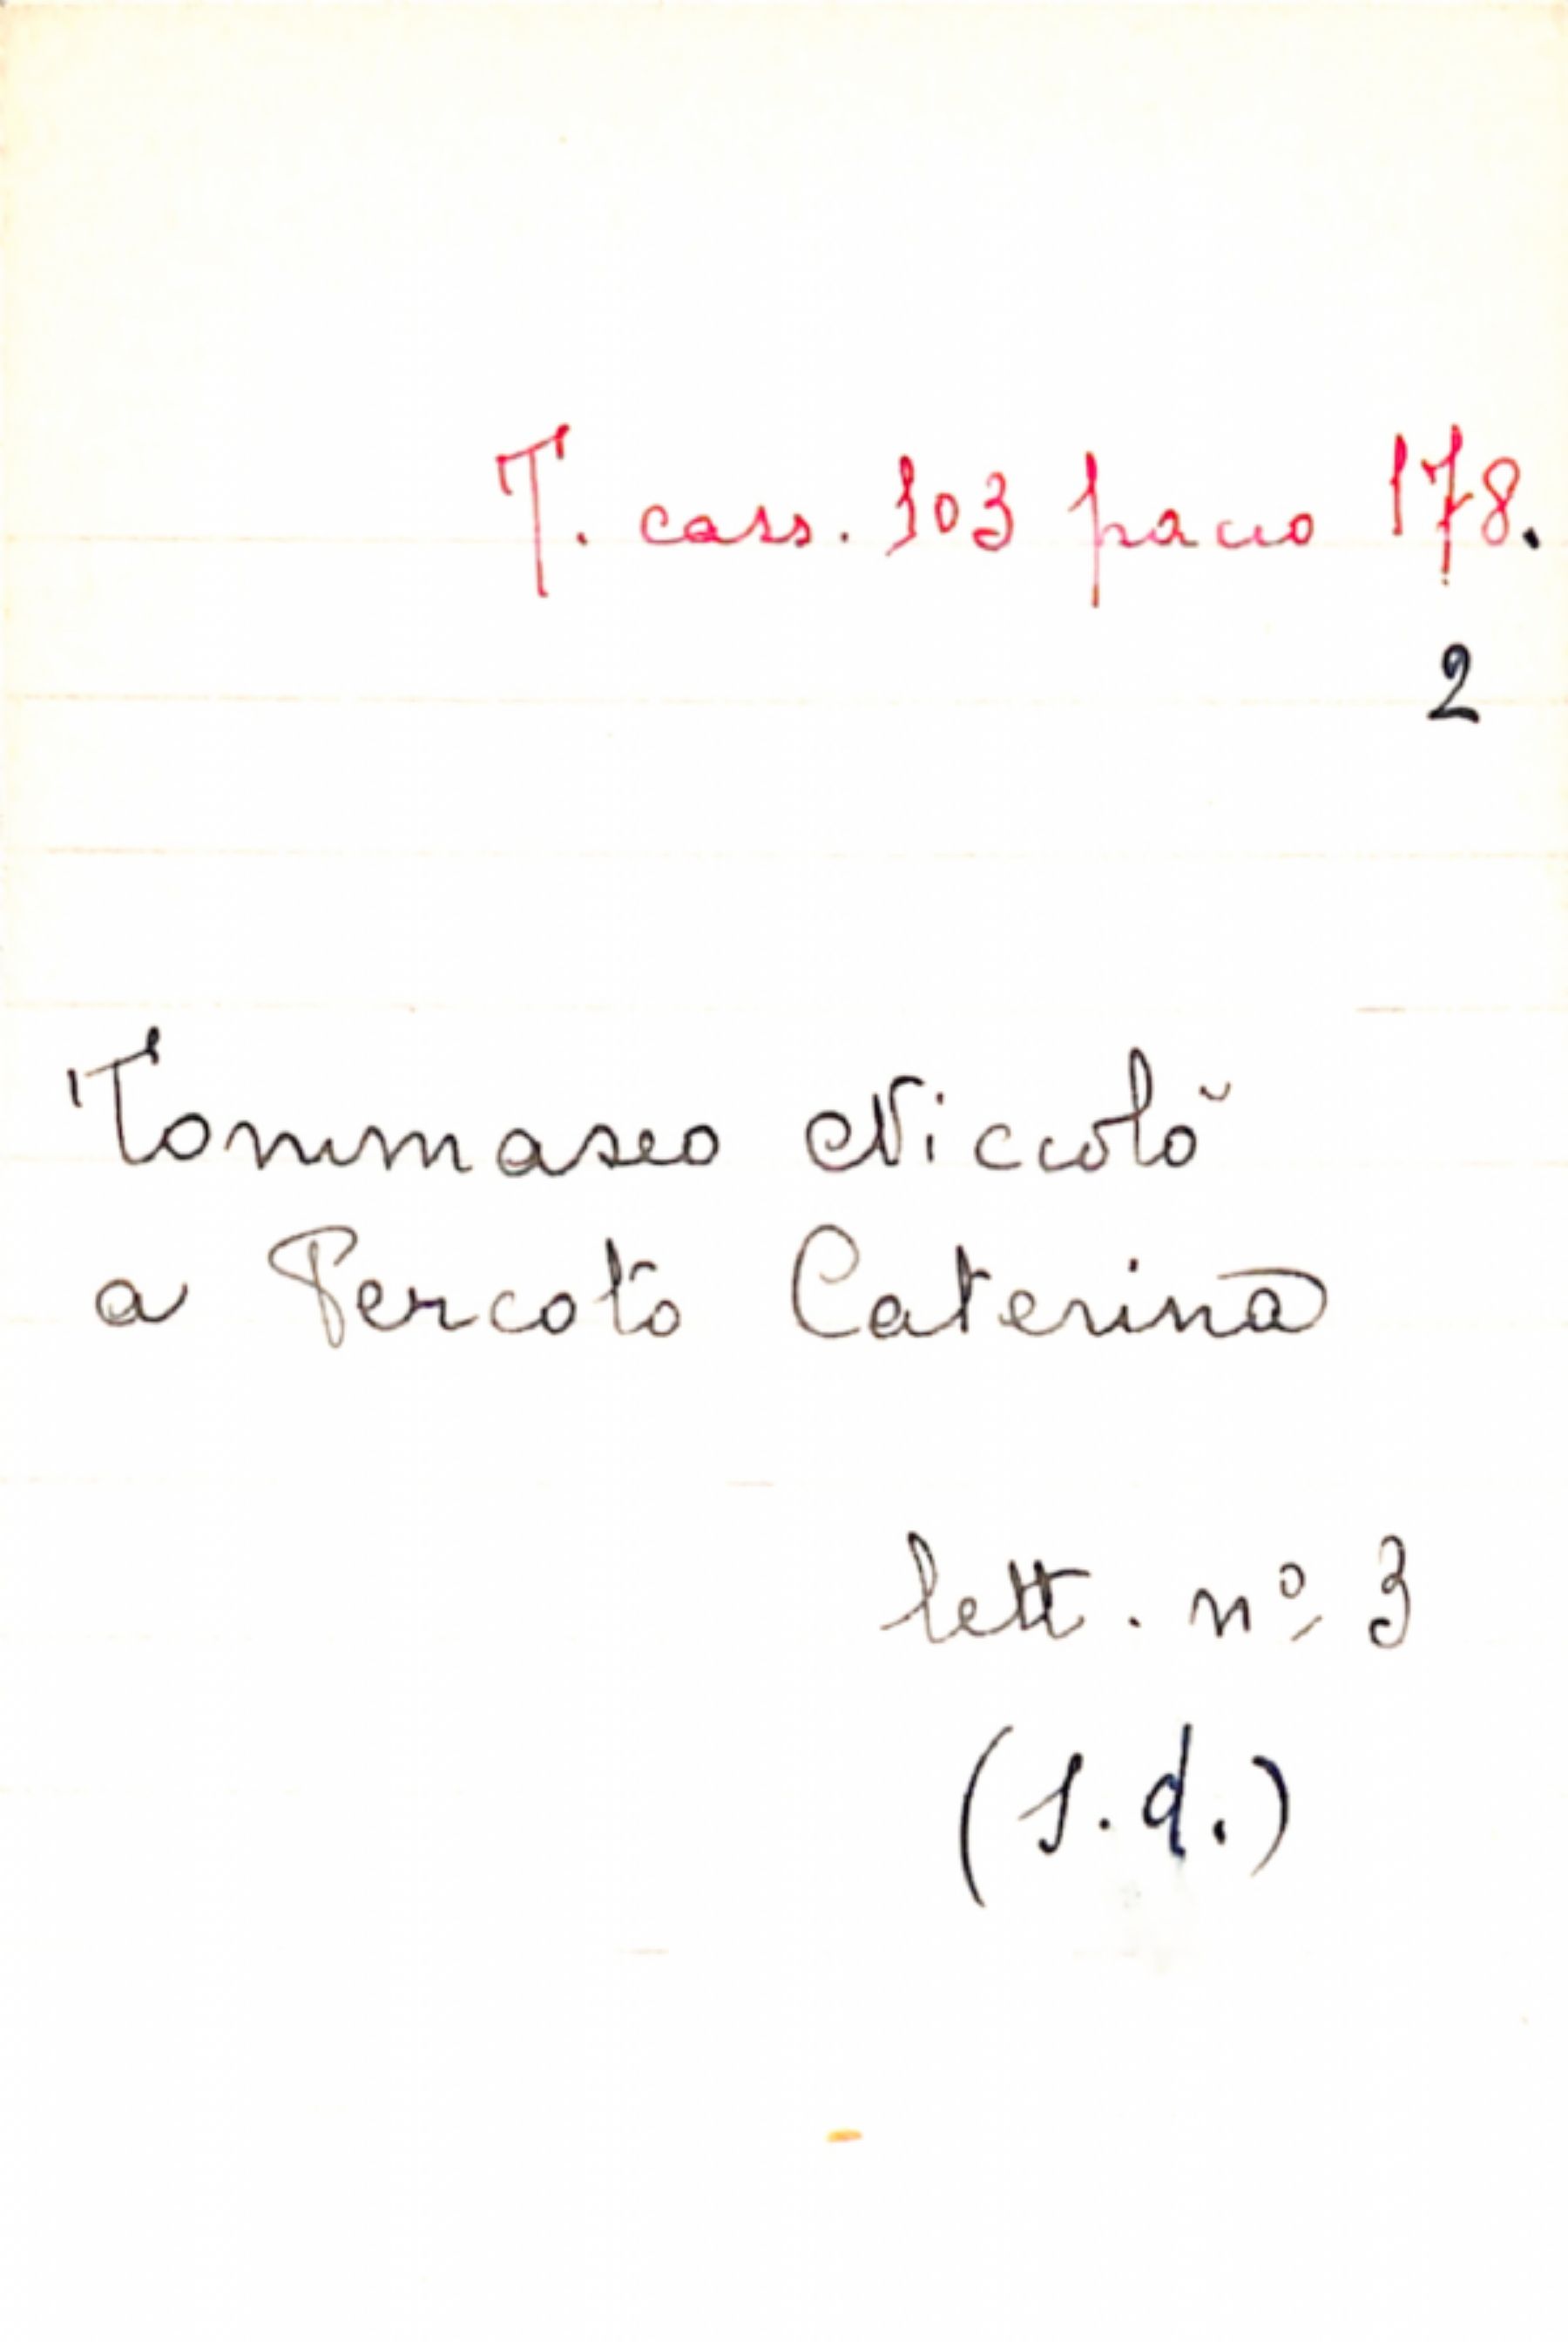 T. cass. 103 pacco 178.
2
Tommaseo Niccolò
a Percoto Caterina
lett. nº 3
(s.d.)